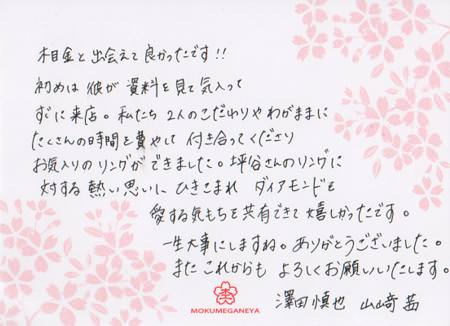 木目金と出会えて良かったです!!
初めは彼が資料を見て気入って
すぐに来店。私たち2人のこだわりやわがままに
たくさんの時間を費やして付き合ってくださり
お気入りのリングができました。坪谷さんのリングに
対する熱い思いにひきこまれ ダイアモンドを
愛する気もちを共有できて嬉しかったです。
一生大事にしますね。ありがとうございました。
またこれからも よろしくお願いいたします。
澤田慎也 山﨑茜
MOKUMEGANEYA